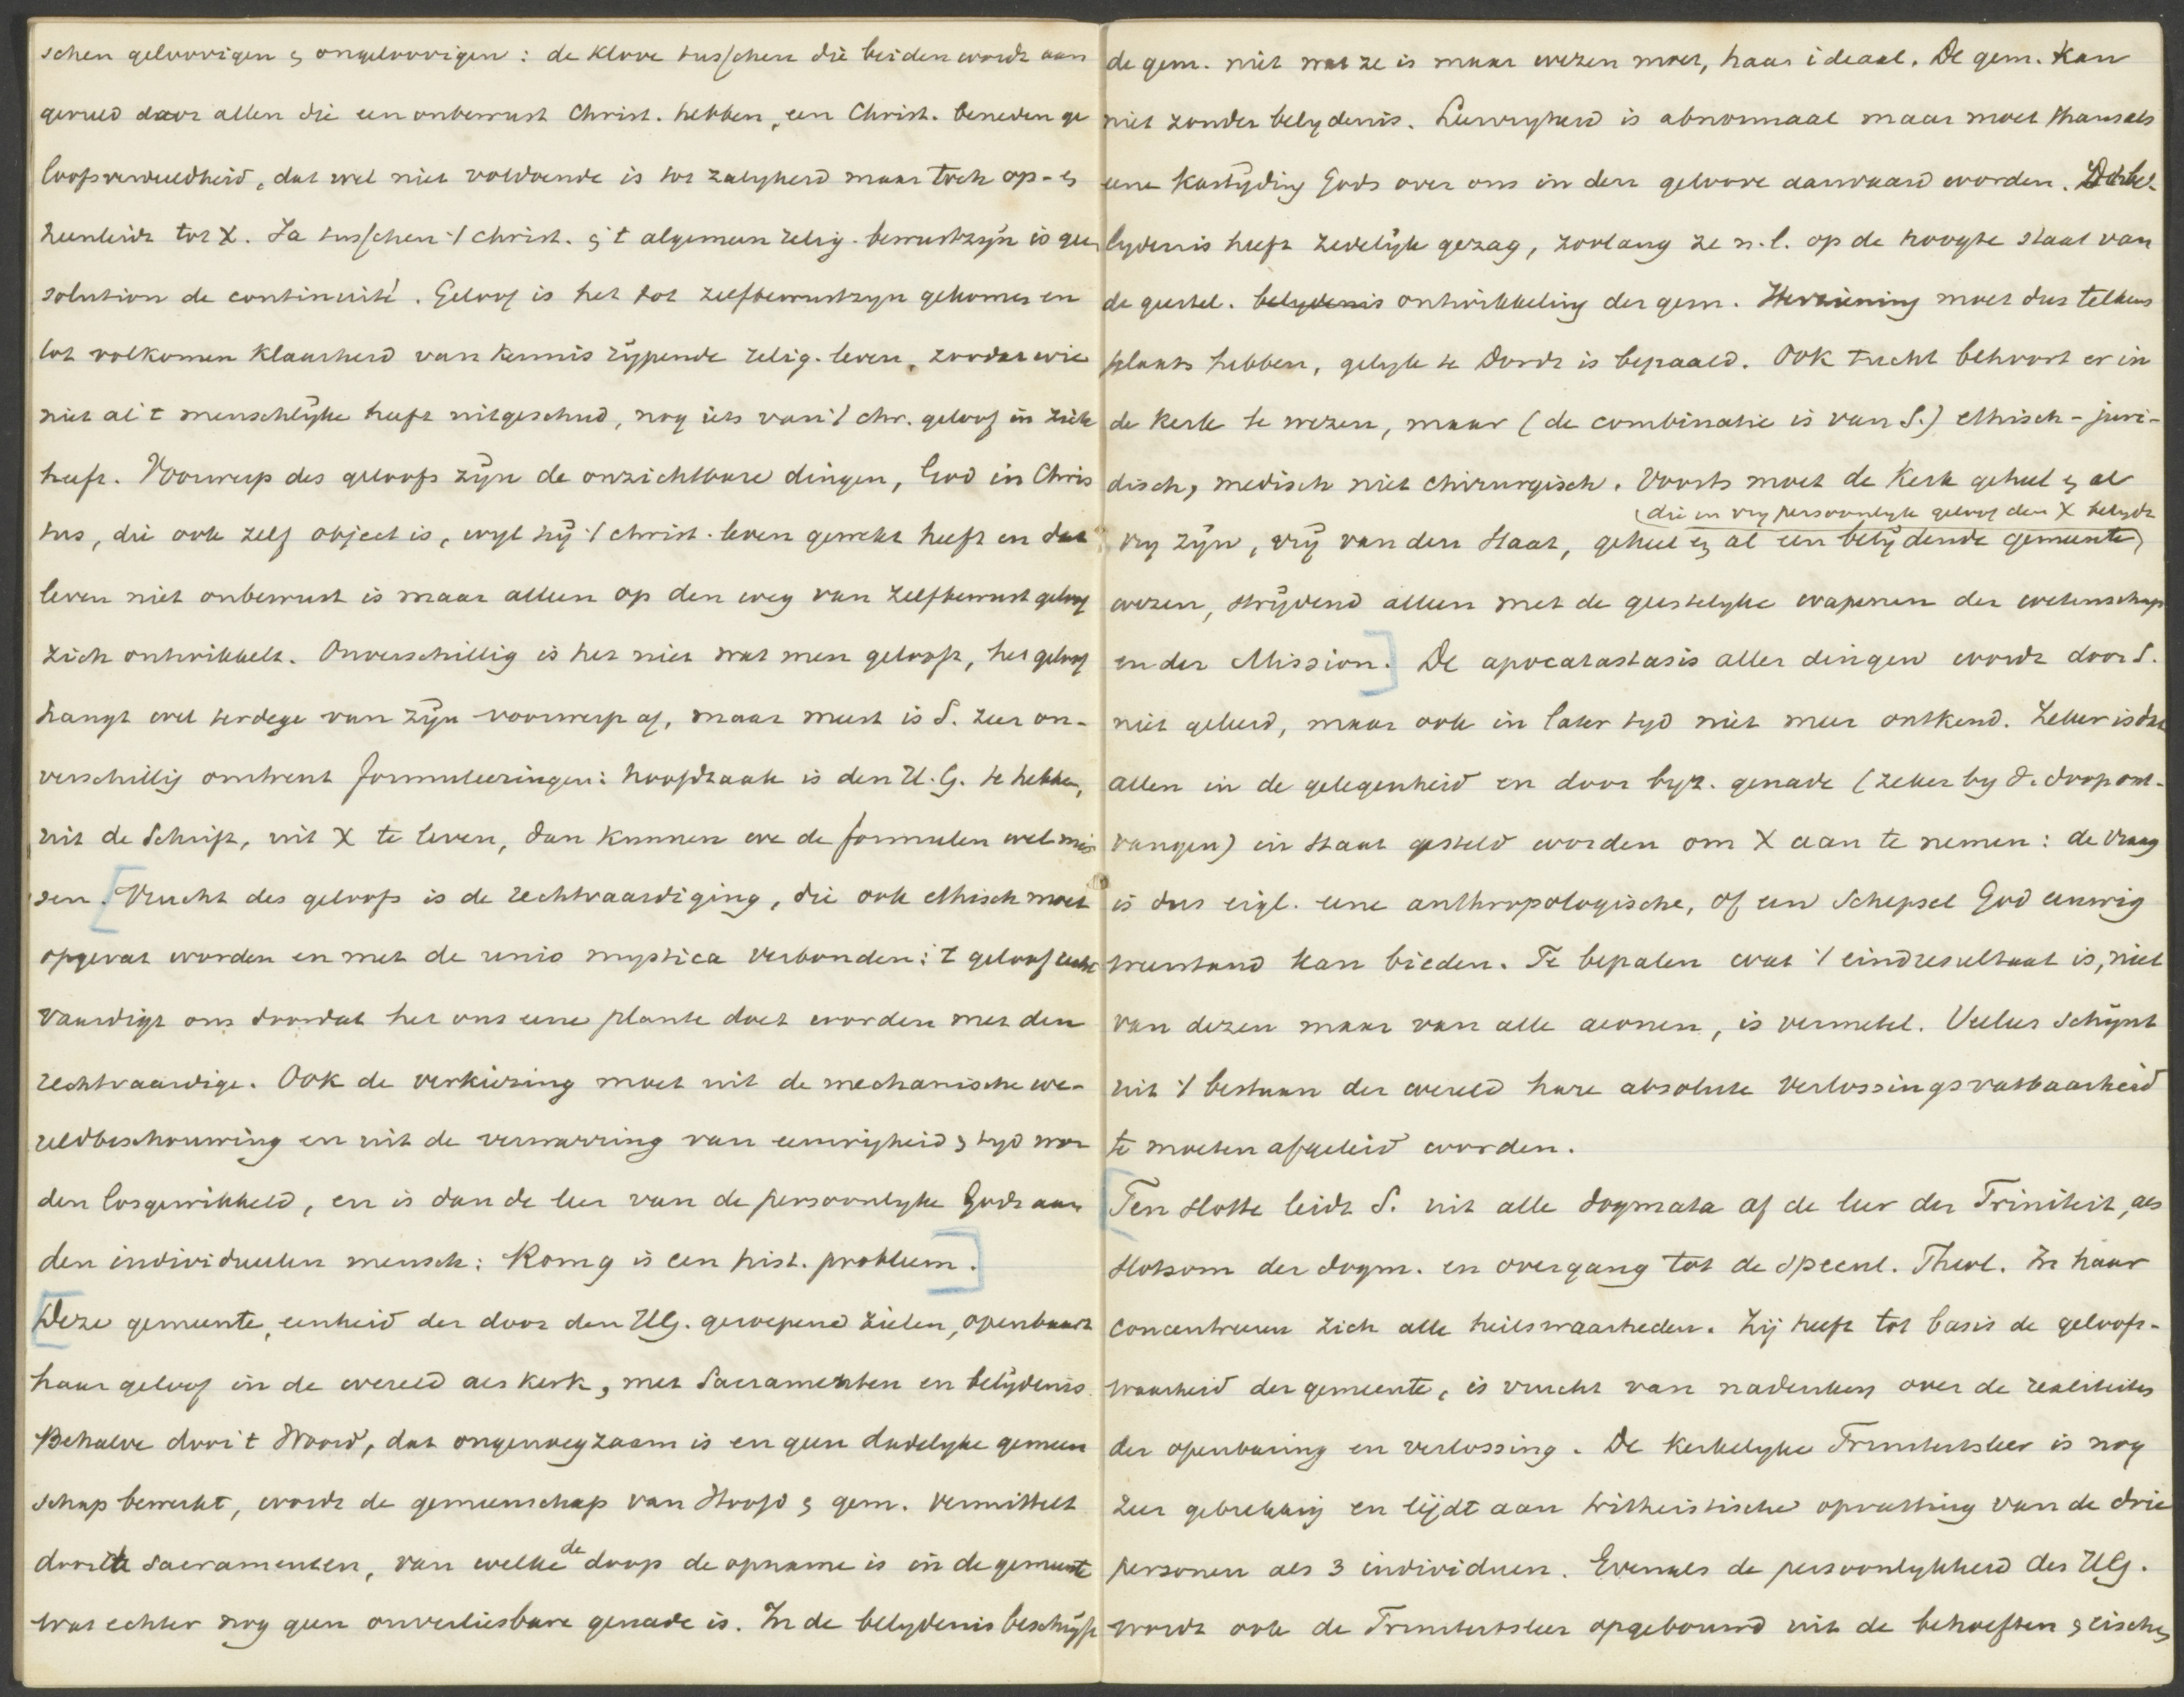 schen geloovigen & ongeloovigen: de klove tusschen die beiden wordt aan
gevuld door allen die een onbewust Christ. hebben, een Christ. beneden ge
loofsverdeeldheid, dat wel niet voldoende is tot zalygheid maar toch op- &
heenleidt tot X. Ja tusschen 't Christ. & 't algemeen relig. bewustzÿn is geen
solution de continuité. Geloof is het tot zelfbewustzyn gekomen en
tot volkomen klaarheid van kennis rÿpende relig. leven, zoodat wie
niet al 't menschlÿke heeft uitgeschud, nog iets van 't chr. geloof in zich
heeft. Voorwerp des geloofs zÿn de onzichtbare dingen, God in Chris
tus, die ook zelf object is, wyl hÿ 't christ. leven gewekt heeft en dat
leven niet onbewust is maar alleen op den weg van zelfbewust geloof
zich ontwikkelt. Onverschillig is het niet wat men gelooft, het geloof
hangt wel terdege van zÿn voorwerp af, maar meest is S. zeer on-
verschillig omtrent formuleeringen: hoofdzaak is den H. G. te hebben,
uit de Schrift, uit X te leven, dan kunnen we de formulen wel mis
sen. [Vrucht des geloofs is de rechtvaardiging, die ook ethisch moet
opgevat worden en met de unio mystica verbonden: 't geloof recht
vaardigt ons doordat het ons eene plante doet worden met den
rechtvaardige. Ook de verkiezing moet uit de mechanische we-
reldbeschouwing en uit de verwarring van eeuwigheid & tyd wor
den losgewikkeld, en is dan de leer van de persoonlyke Gods aan
den individueelen mensch: Rom 9 is een hist. probleem.]
[Deze gemeente, eenheid der door den HG. geroepene zielen, openbaart
haar geloof in de wereld als kerk, met Sacramenten en belÿdenis.
Behalve door 't Woord, dat ongenoegzaam is en geen dadelyke gemeen
schap bewerkt, wordt de gemeenschap van Hoofd & gem. vermittelt
door de Sacramenten, van welke de doop de opname is in de gemeente
wat echter nog geen onverliesbare genade is. In de belydenis beschrÿft
de gem. niet wat ze is maar wezen moet, haar ideaal. De gem. kan
niet zonder belydenis. Leervryheid is abnormaal maar moet thans als
eene kastÿding Gods over ons in den geloove aanvaard worden. De be-
lydenis heeft zedelÿk gezag, zoolang ze n.l. op de hoogte staat van
de geestel. belydenis ontwikkeling der gem. Herziening moet dus telkens
plaats hebben, gelyk te Dordt is bepaald. Ook tucht behoort er in
de kerk te wezen, maar (de combinatie is van S.) ethisch-juri-
disch, medisch niet chirurgisch. Voorts moet de Kerk geheel & al
(die in vry persoonlyk geloof den X belydt
vry zÿn, vrÿ van den Staat, geheel & al een belÿdende gemeente)
wezen, strÿdend alleen met de geestelyke wapenen der wetenschap
en der Mission.] De apocatastasis aller dingen wordt door S.
niet geleerd, maar ook in later tyd niet meer ontkend. Zeker is dat
allen in de gelegenheid en door byz. genade (zeker by d. doop ont-
vangen) in staat gesteld worden om X aan te nemen: de vraag
is dus eigl. eene anthropologische, of een Schepsel God eeuwig
weerstand kan bieden. Te bepalen wat 't eindresultaat is, niet
van dezen maar van alle aeonen, is vermetel. Veeleer schÿnt
uit 't bestaan der wereld hare absolute verlossingsvatbaarheid
te moeten afgeleid worden.
[Ten slotte leidt S. uit alle dogmata af de leer der Triniteit, als
slotsom der dogm. en overgang tot de specul. Theol. In haar
concentreeren zich alle heilswaarheden. Zij heeft tot basis de geloofs-
waarheid der gemeente, is vrucht van nadenken over de realiteiten
der openbaring en verlossing. De kerkelyke Triniteitsleer is nog
zeer gebrekkig en lijdt aan tritheistische opvatting van de drie
personen als 3 individuen. Evenals de persoonlykheid des HG.
wordt ook de Triniteitsleer opgebouwd uit de behoeften & eischen